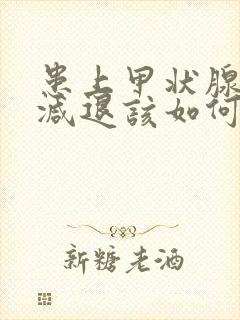 患上甲状腺
减退該如何
新糖老酒